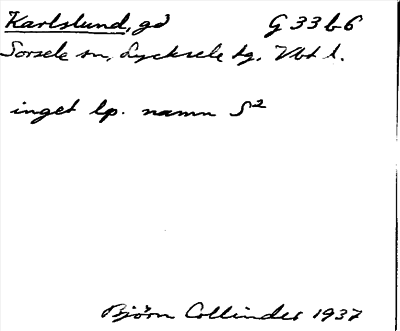 Karlslund, gd G 33 b 6
Sorsele sn, Lycksele tg, Vbt l.
inget lp. namn S²
Björn Collinder 1937